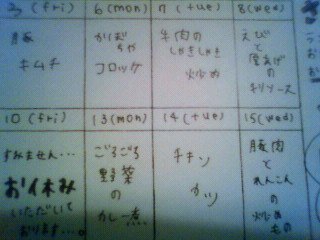 3 (fri)
6 (mon)
7 (tue)
8 (wed)
豚
キムチ
かぼ
ちゃ
コロッケ
牛肉の
しゃきしゃき
炒め
えび
と
厚あげ
の
チリソース
10 (fri)
13 (mon)
14 (tue)
15 (wed)
すみません…
お休み
いただいて
おります…。
ごろごろ
野菜
の
カレー煮
チキン
カツ
豚肉
と
れんこん
の
炒め
もの